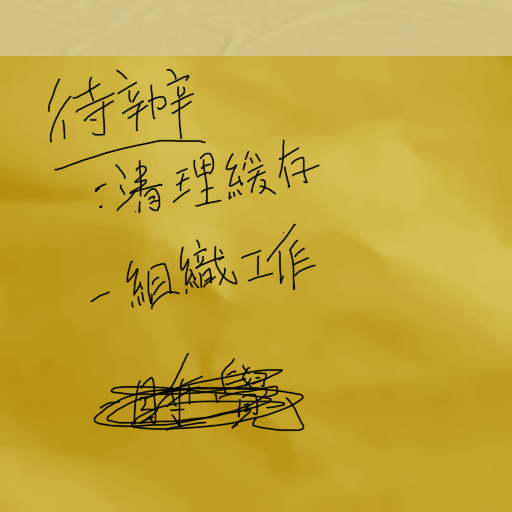 待辦
:清理緩存
-組織工作
睡覺